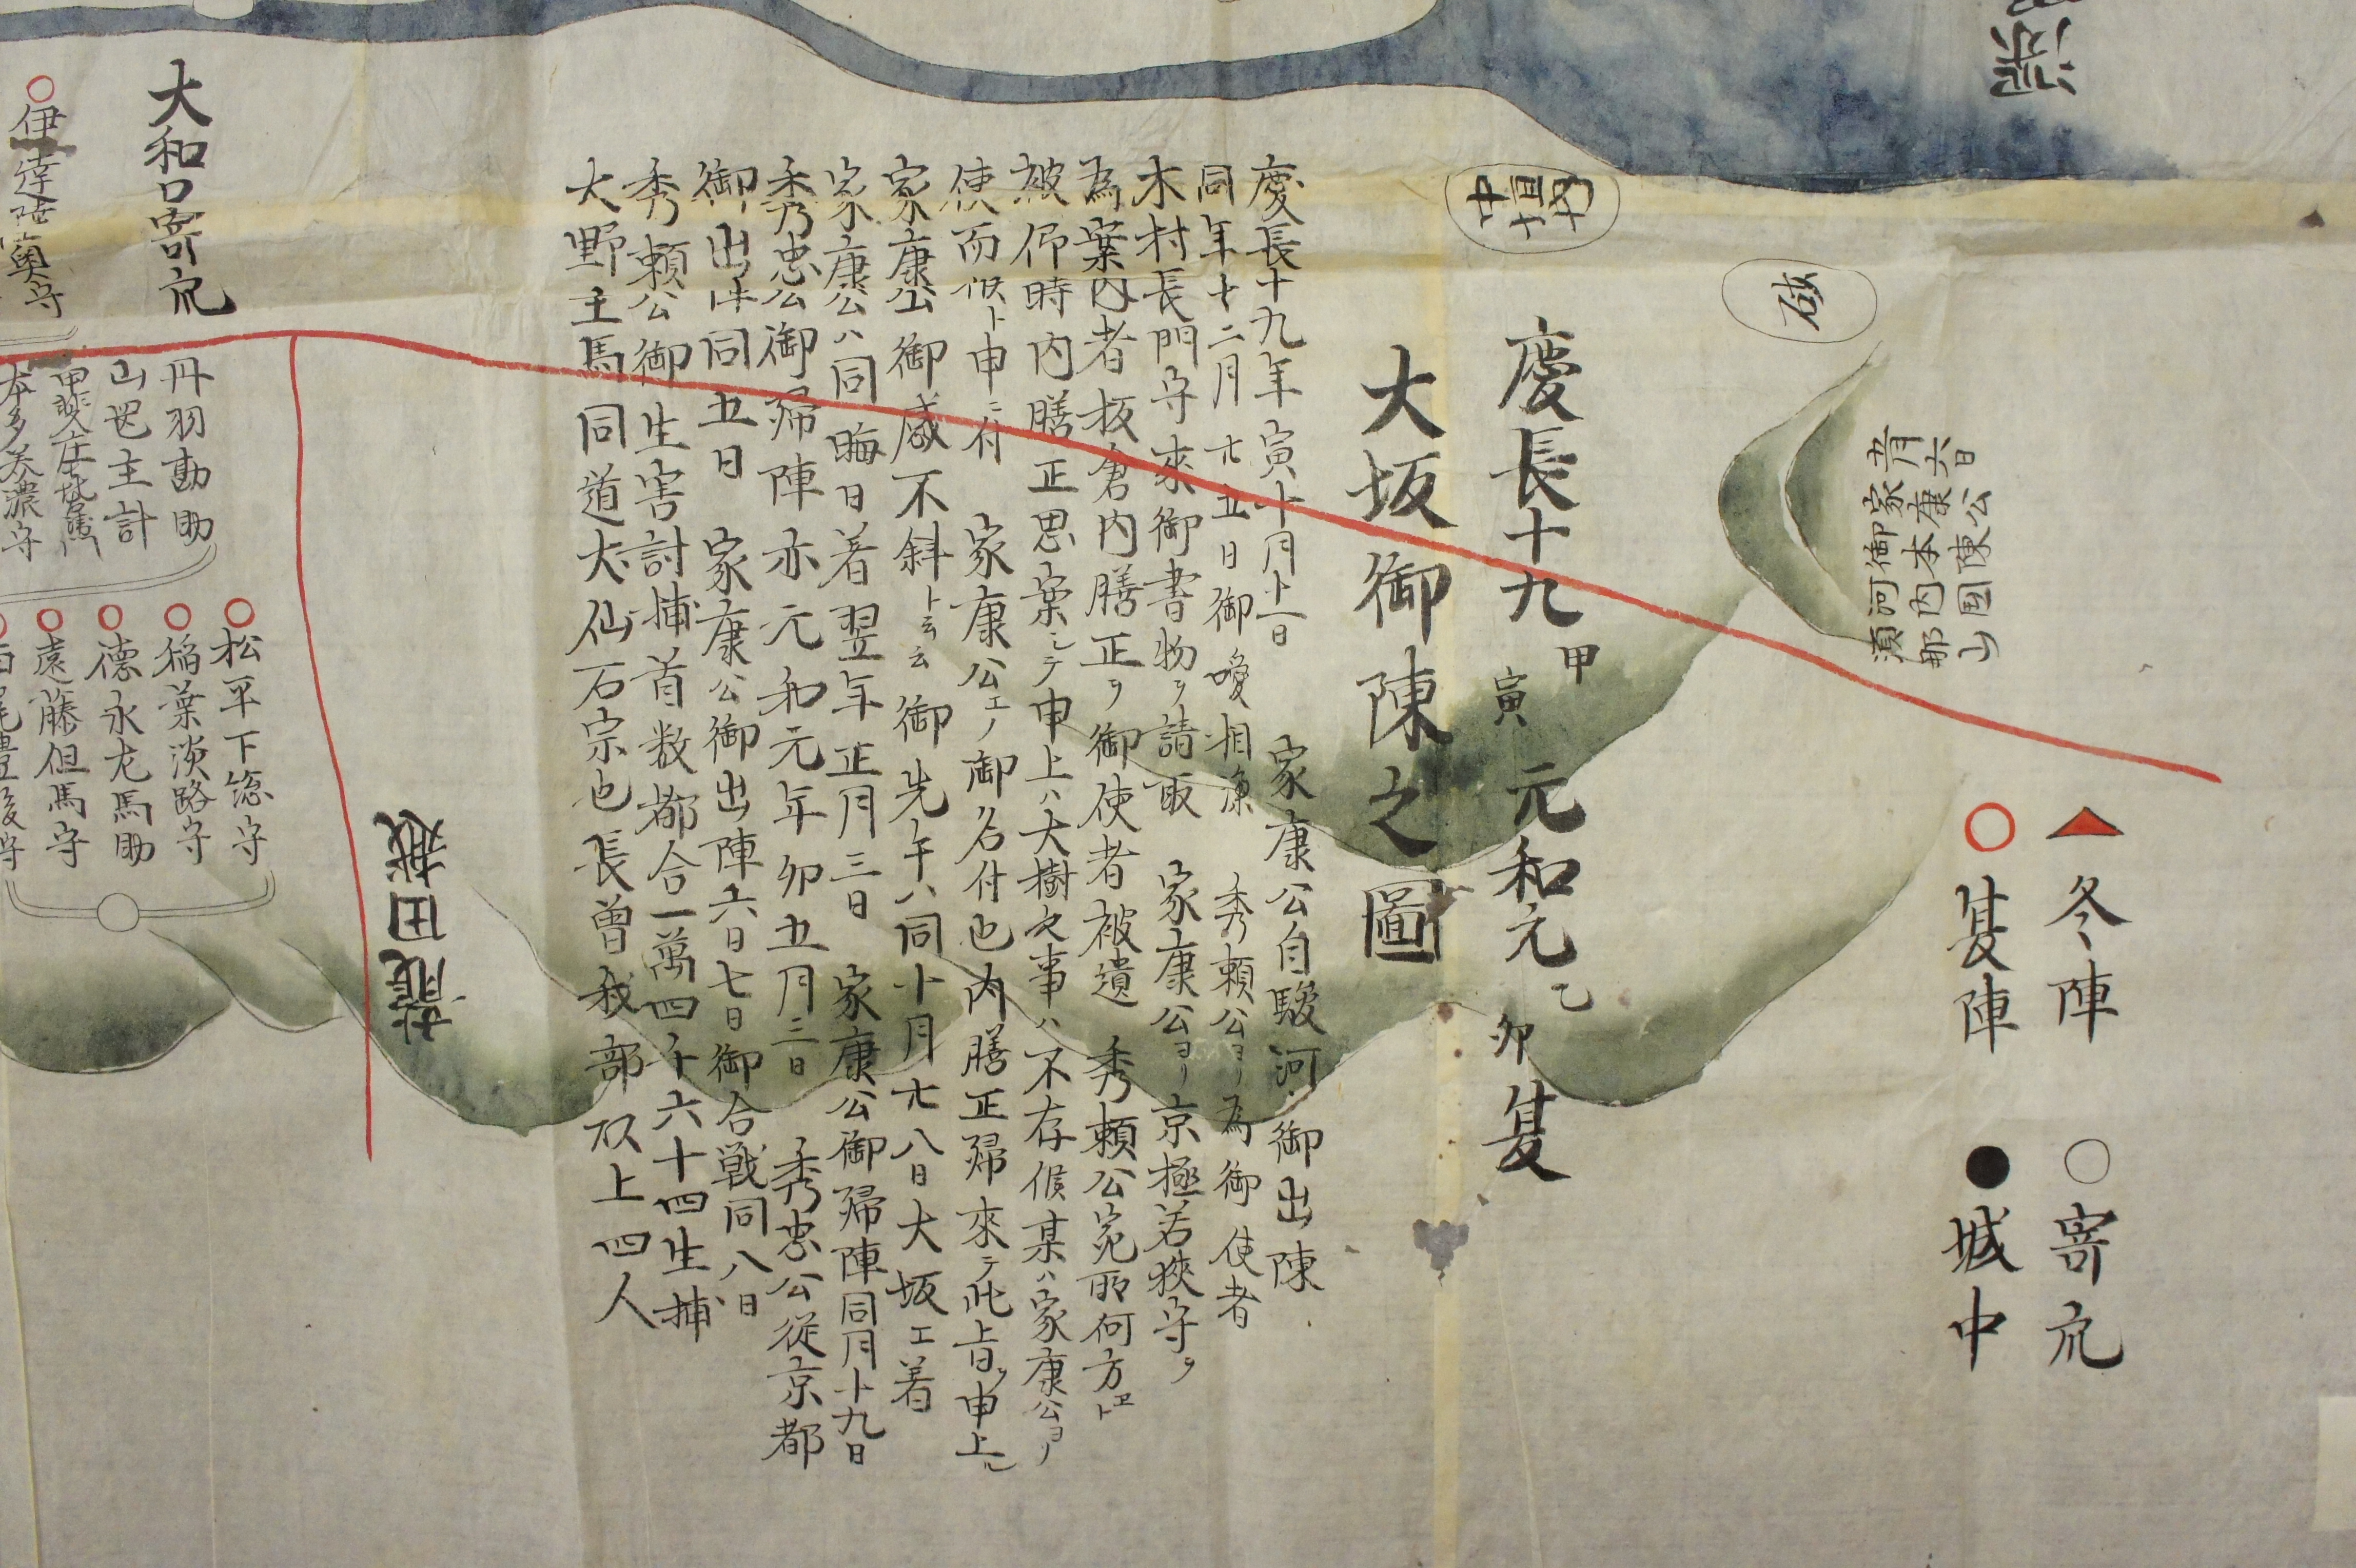 冬陣
寄衆
夏陣
城中
五月六日
家康公陳
御本国
須河内
那山
砂
中垣内
慶長十九甲寅 元和元乙卯夏
大坂御陳之圖
慶長十九年寅十月十一日 家康公自駿河御出陳
同年十二月廿五日御噯相濟 秀頼公ヨリ為御使者
木村長門守來御書物ヲ請取 家康公ヨリ京極若狹守ヲ
為案内者板倉内膳正ヲ御使者被遺 秀頼公宛所何方ヱト
被仰時内膳正思案シテ申上ハ大樹之事ハ不存候某ハ家康公ヨリノ
使而候ト申ニ付 家康公エノ御名付也内膳正歸來テ此上旨ヲ申上シ
家康公御感不斜ト云云御先年ハ同十月廿八日大坂エ着
家康公ハ同晦日着翌年正月三日 家康公御歸陣同月十九日
秀忠公御歸陣亦元和元年卯五月三日 秀忠公從京都
御出同五日 家康公御出陣六日七日御合戦同八日
秀頼公御生害討捕首数都合一萬四千六十四生捕
大野主馬同道犬仙石宗也長曽我部以上四人
龍田越
大和口寄衆
伊達陸奥守
丹羽勘助
山岡主計
甲斐庄喜右衛門
本多美濃守
松平下総守
稲葉淡路守
德永左馬助
遠藤但馬守